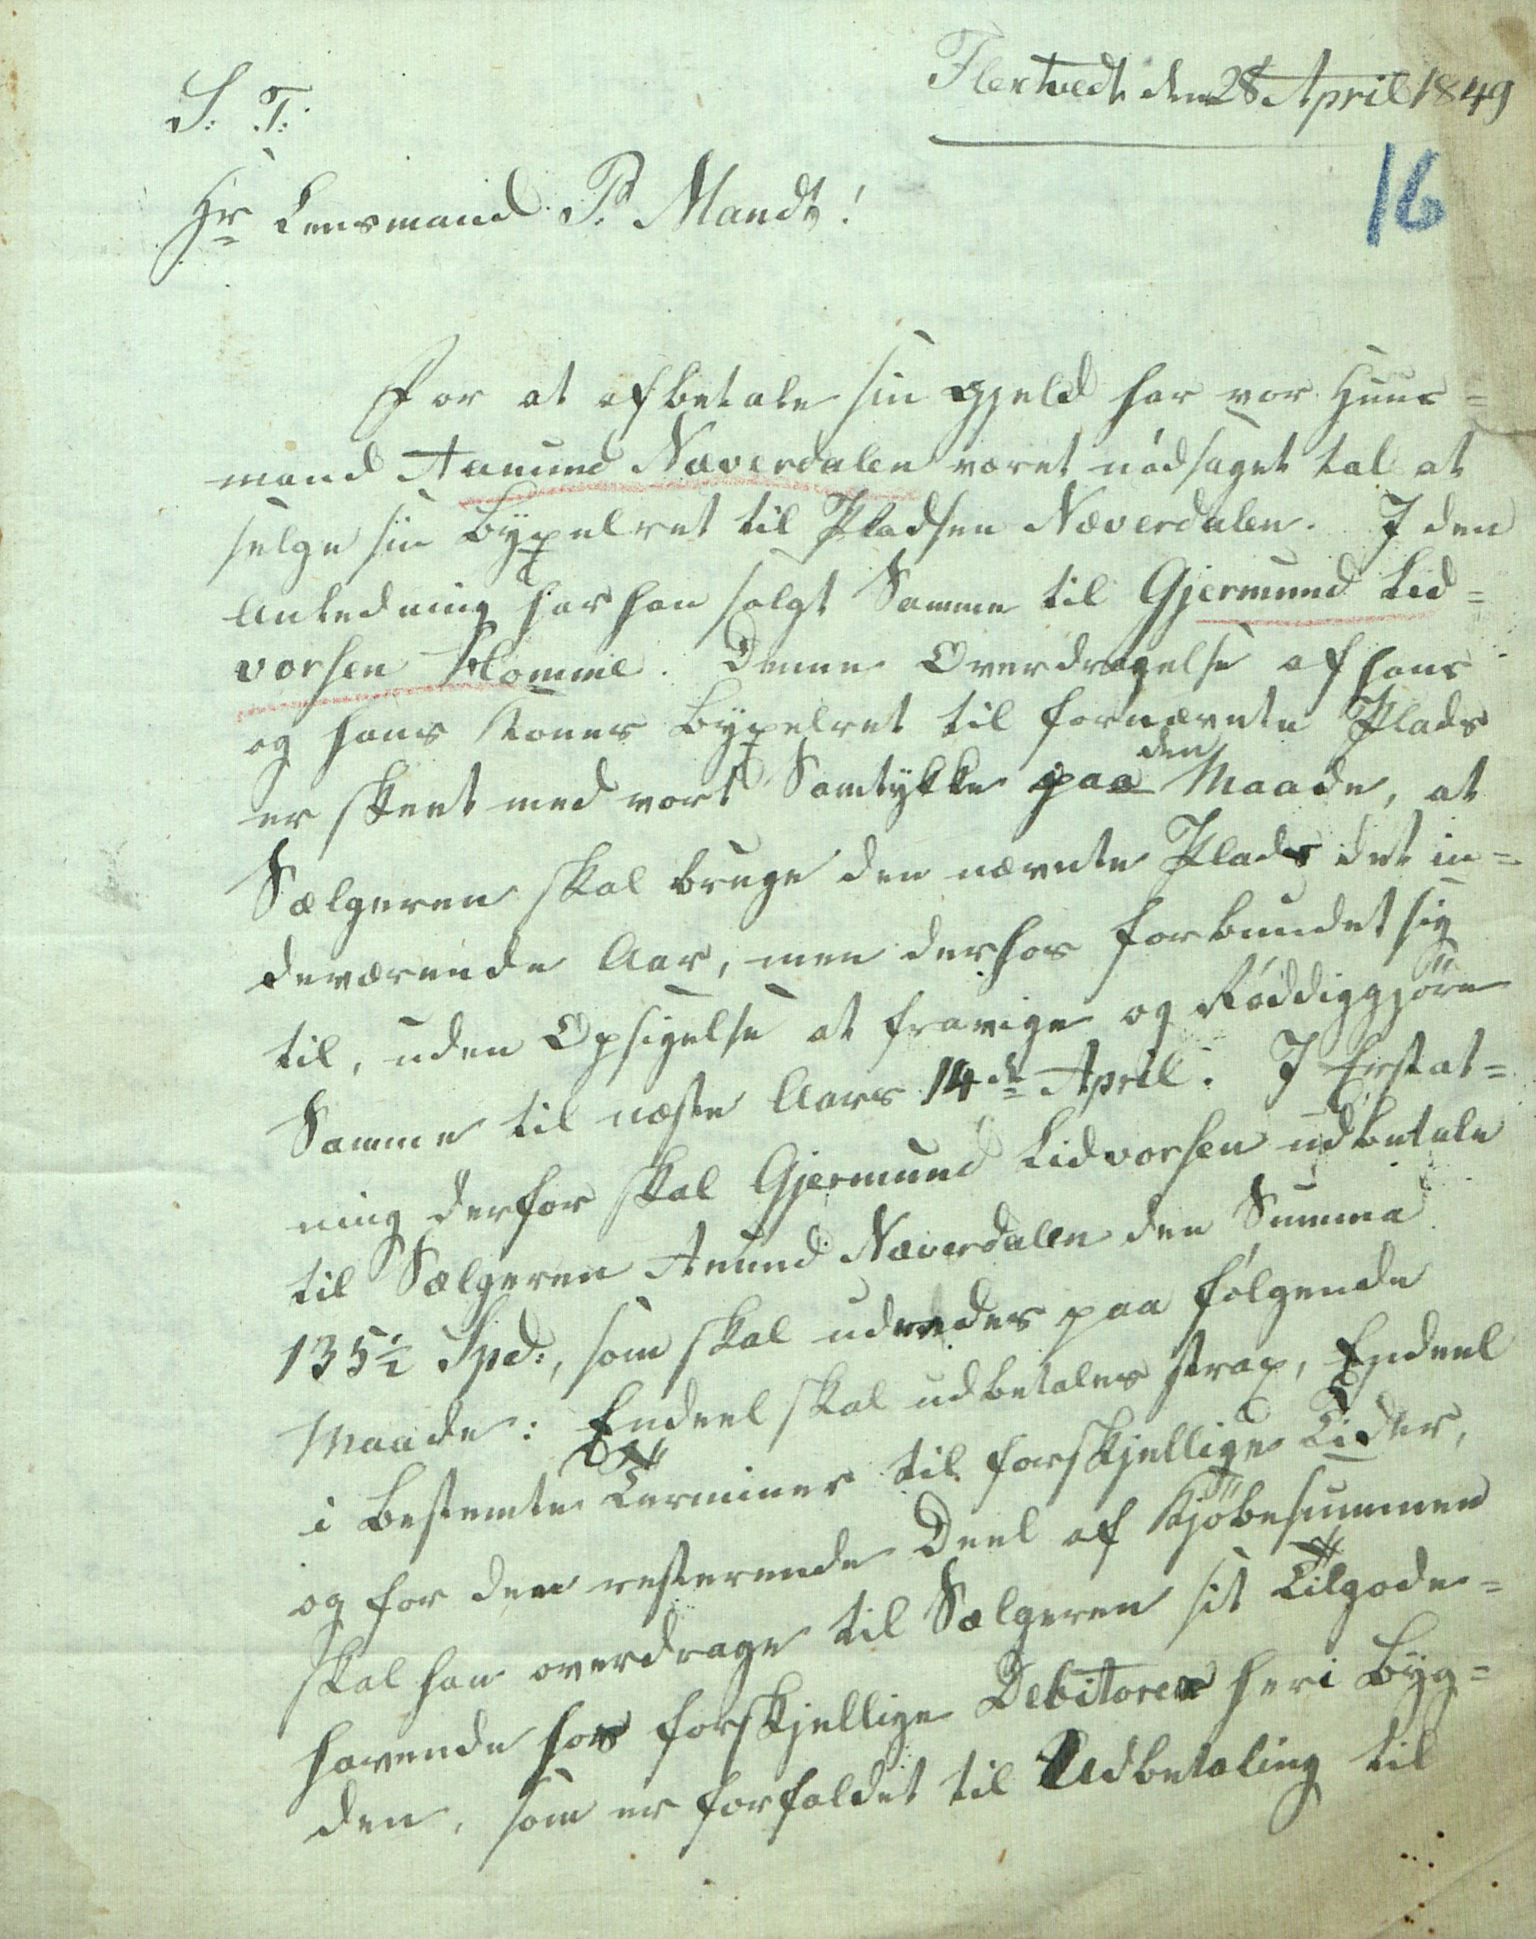 Flertvedt den 28 April 1849
S. T.
16
Hr Lensmand P. Mandt!
For at afbetale sin Gjeld har vor Huus=
mand Aanund Næverdalen været nödsaget tal at
selge sin Bÿxelret til Pladsen Næverdalen. I den
Anledning har han solgt Samme til Gjermund Lid=
vorsen Homme. Denne Overdragelse af hans
og hans Kones Bÿxelret til fornævnte Plads
er skeet med vort Samtykke paa den Maade, at
Sælgeren skal bruge den nævnte Plads det in=
deværende Aar, men derhos forbundet sig
til, uden Opsigelse at fravige og Røddiggjöre
Samme til næste Aars 14de April. I Erstat=
ning derfor skal Gjermund Lidvorsen udbetale
til Sælgeren Anund Næverdalen den Summa
135½ Spd:, som skal udredes paa følgende
Maade: Endeel skal udbetales strax, Endeel
i bestemte Terminer til forskjellige Tider,
og for den resterende Deel af Kjöbesummen
skal han overdrage til Sælgeren sit Tilgode=
havende hos forskjellige Debitorer her i Byg=
den, som er forfaldet til Udbetaling til